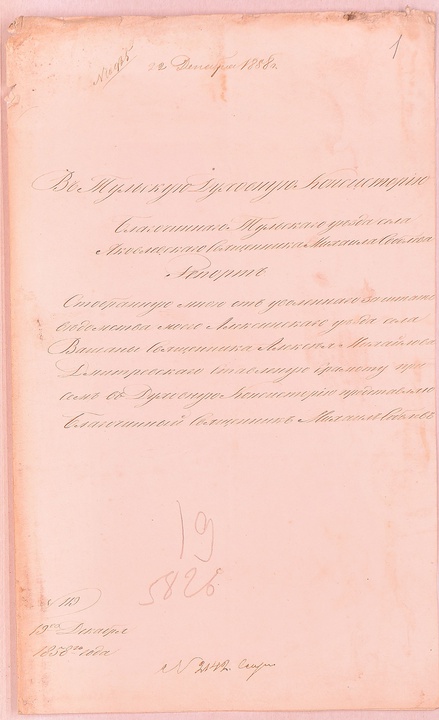 1
22 Декабря 1858 г.
Въ Тульскую Духовную Консисторію
Благочиннаго Тульскаго уѣзда села
Священника Михаила
Репортъ
Отобранную мною отъ уволеннаго за штатъ
вѣдомства моего Алексинскаго уѣзда села
Вашаны Священника Алексѣя Михайлова
Димитревскаго ставленную Грамоту при
семъ въ Духовную Консисторію представляю
Благочинный Священникъ Михаилъ
19
5826
N 119
19го Декабря
1858го года
N 2142